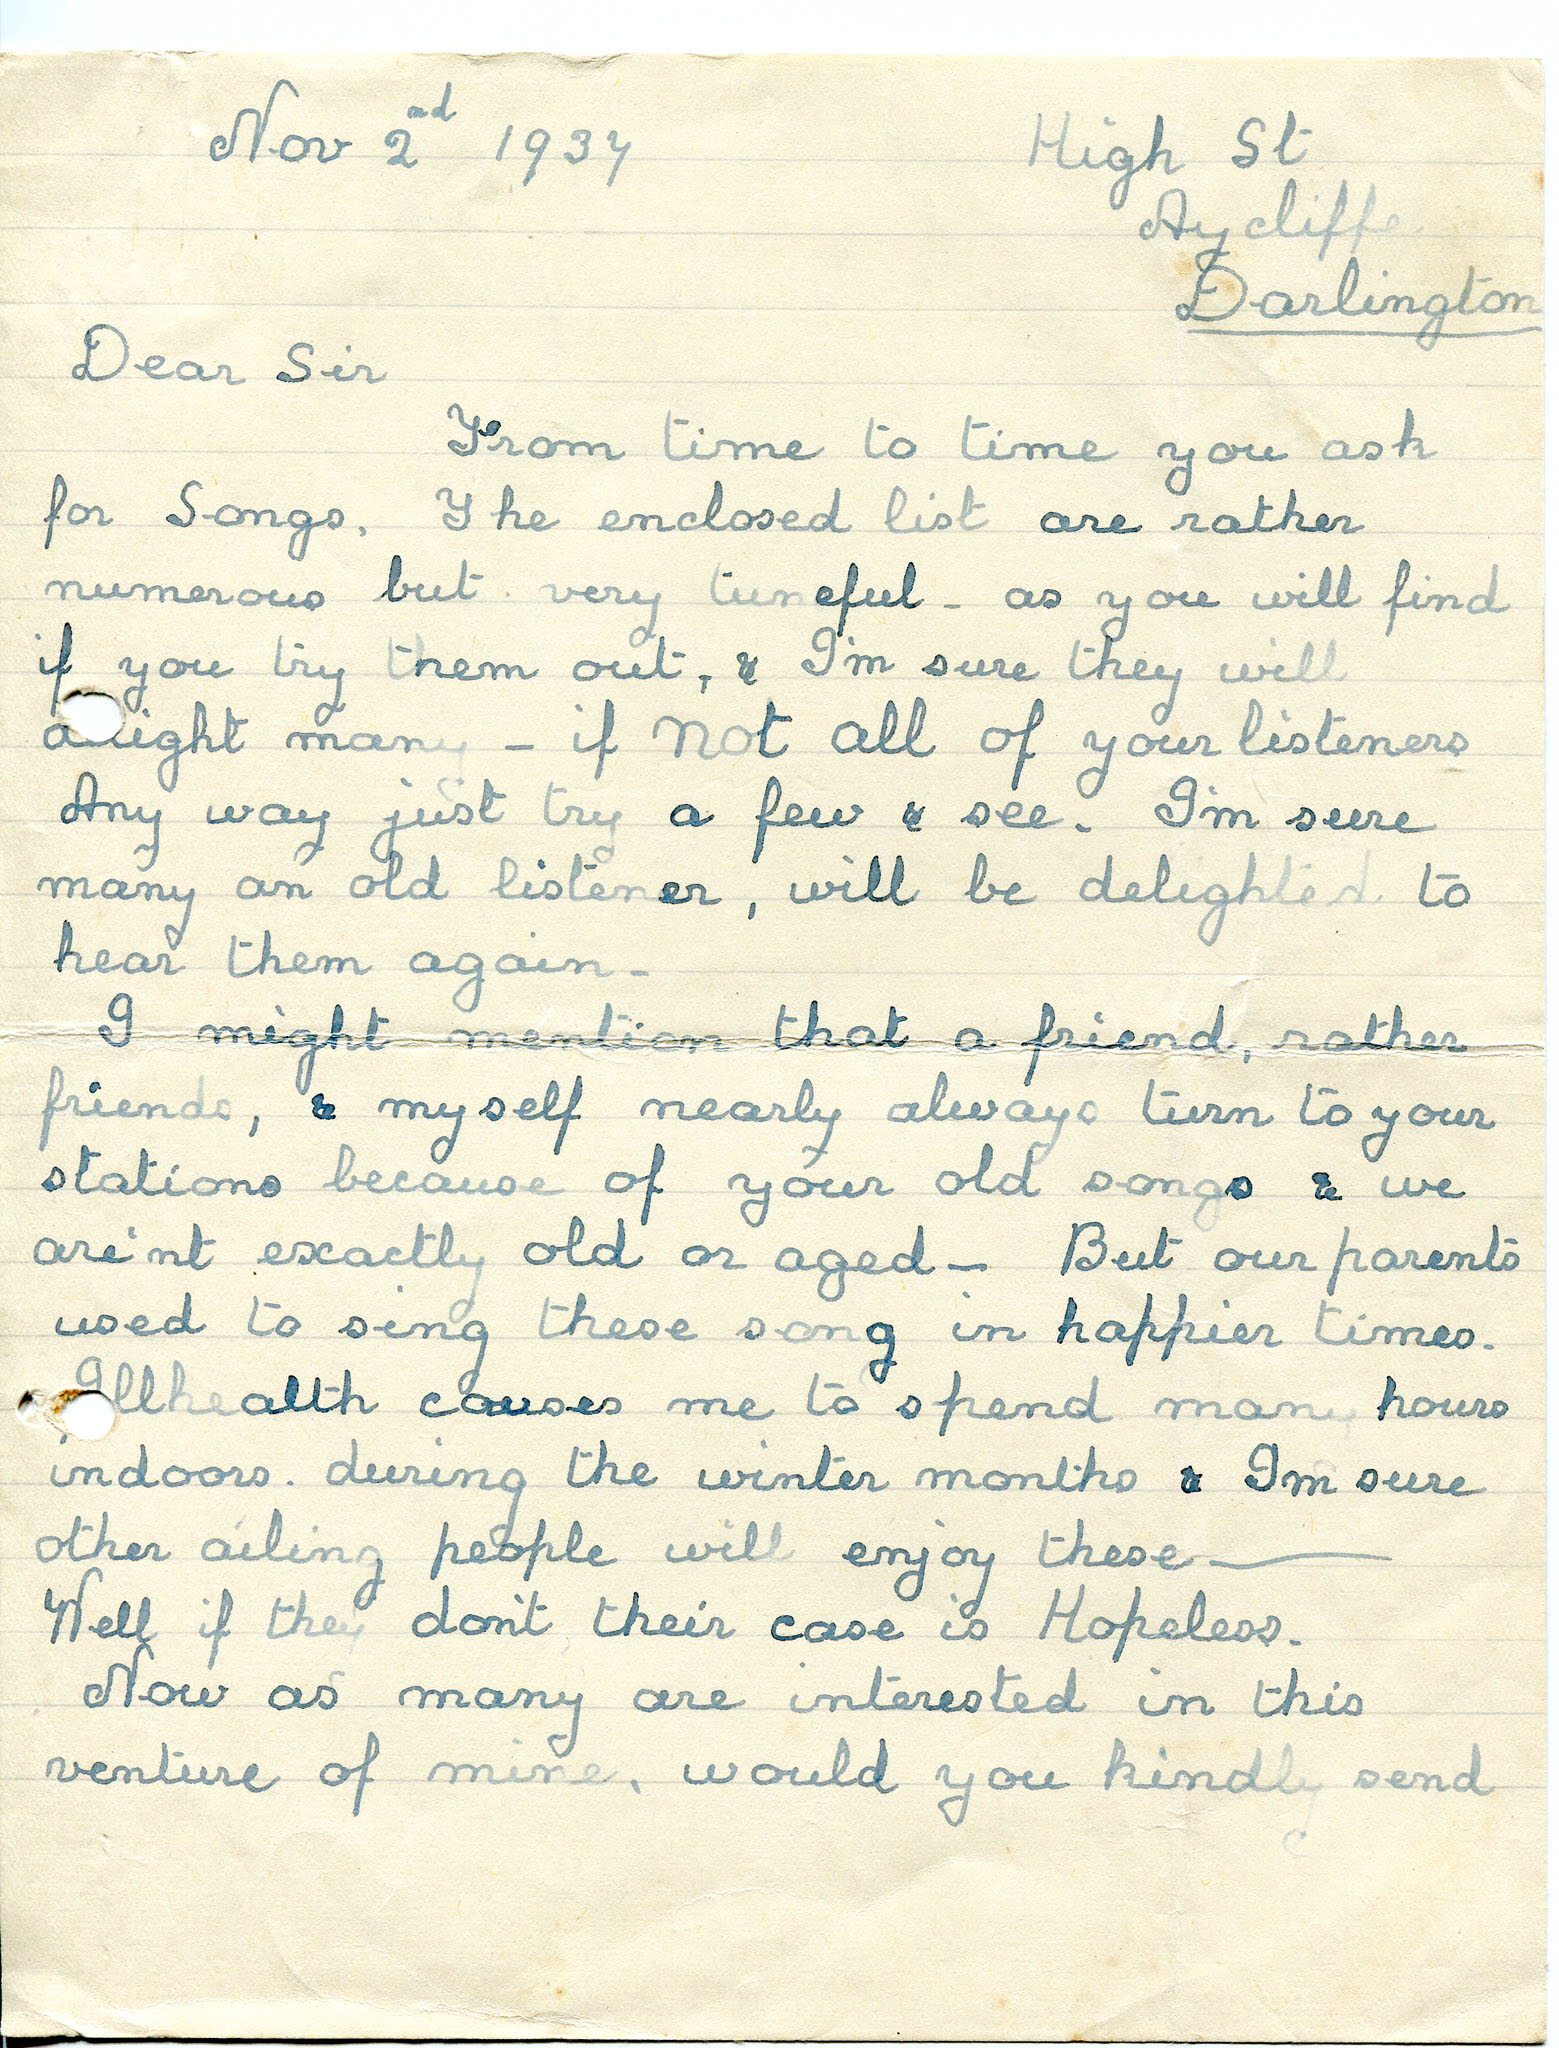 Nov 2nd 1937
High St
Aycliffe
Darlington
Dear Sir
From time to time you ask
for Songs. The enclosed list are rather
numerous but very tuneful - as you will find
if you try them out, & I'm sure they will
many - if not all of your listeners
Any way just try a few & see. I'm sure
many an old listener, will be delighted to
hear them again -
I might mention that a friend, rather
friends, & myself nearly always turn to your
stations because of your old songs & we
are'nt exactly old or aged - But our parents
used to sing these song in happier times.
Illhealth causes me to spend many hours
indoors. during the winter months & I'm sure
other ailing people will enjoy these —
Well if they don't their case is Hopeless.
Now as many are interested in this
venture of mine, would you kindly send